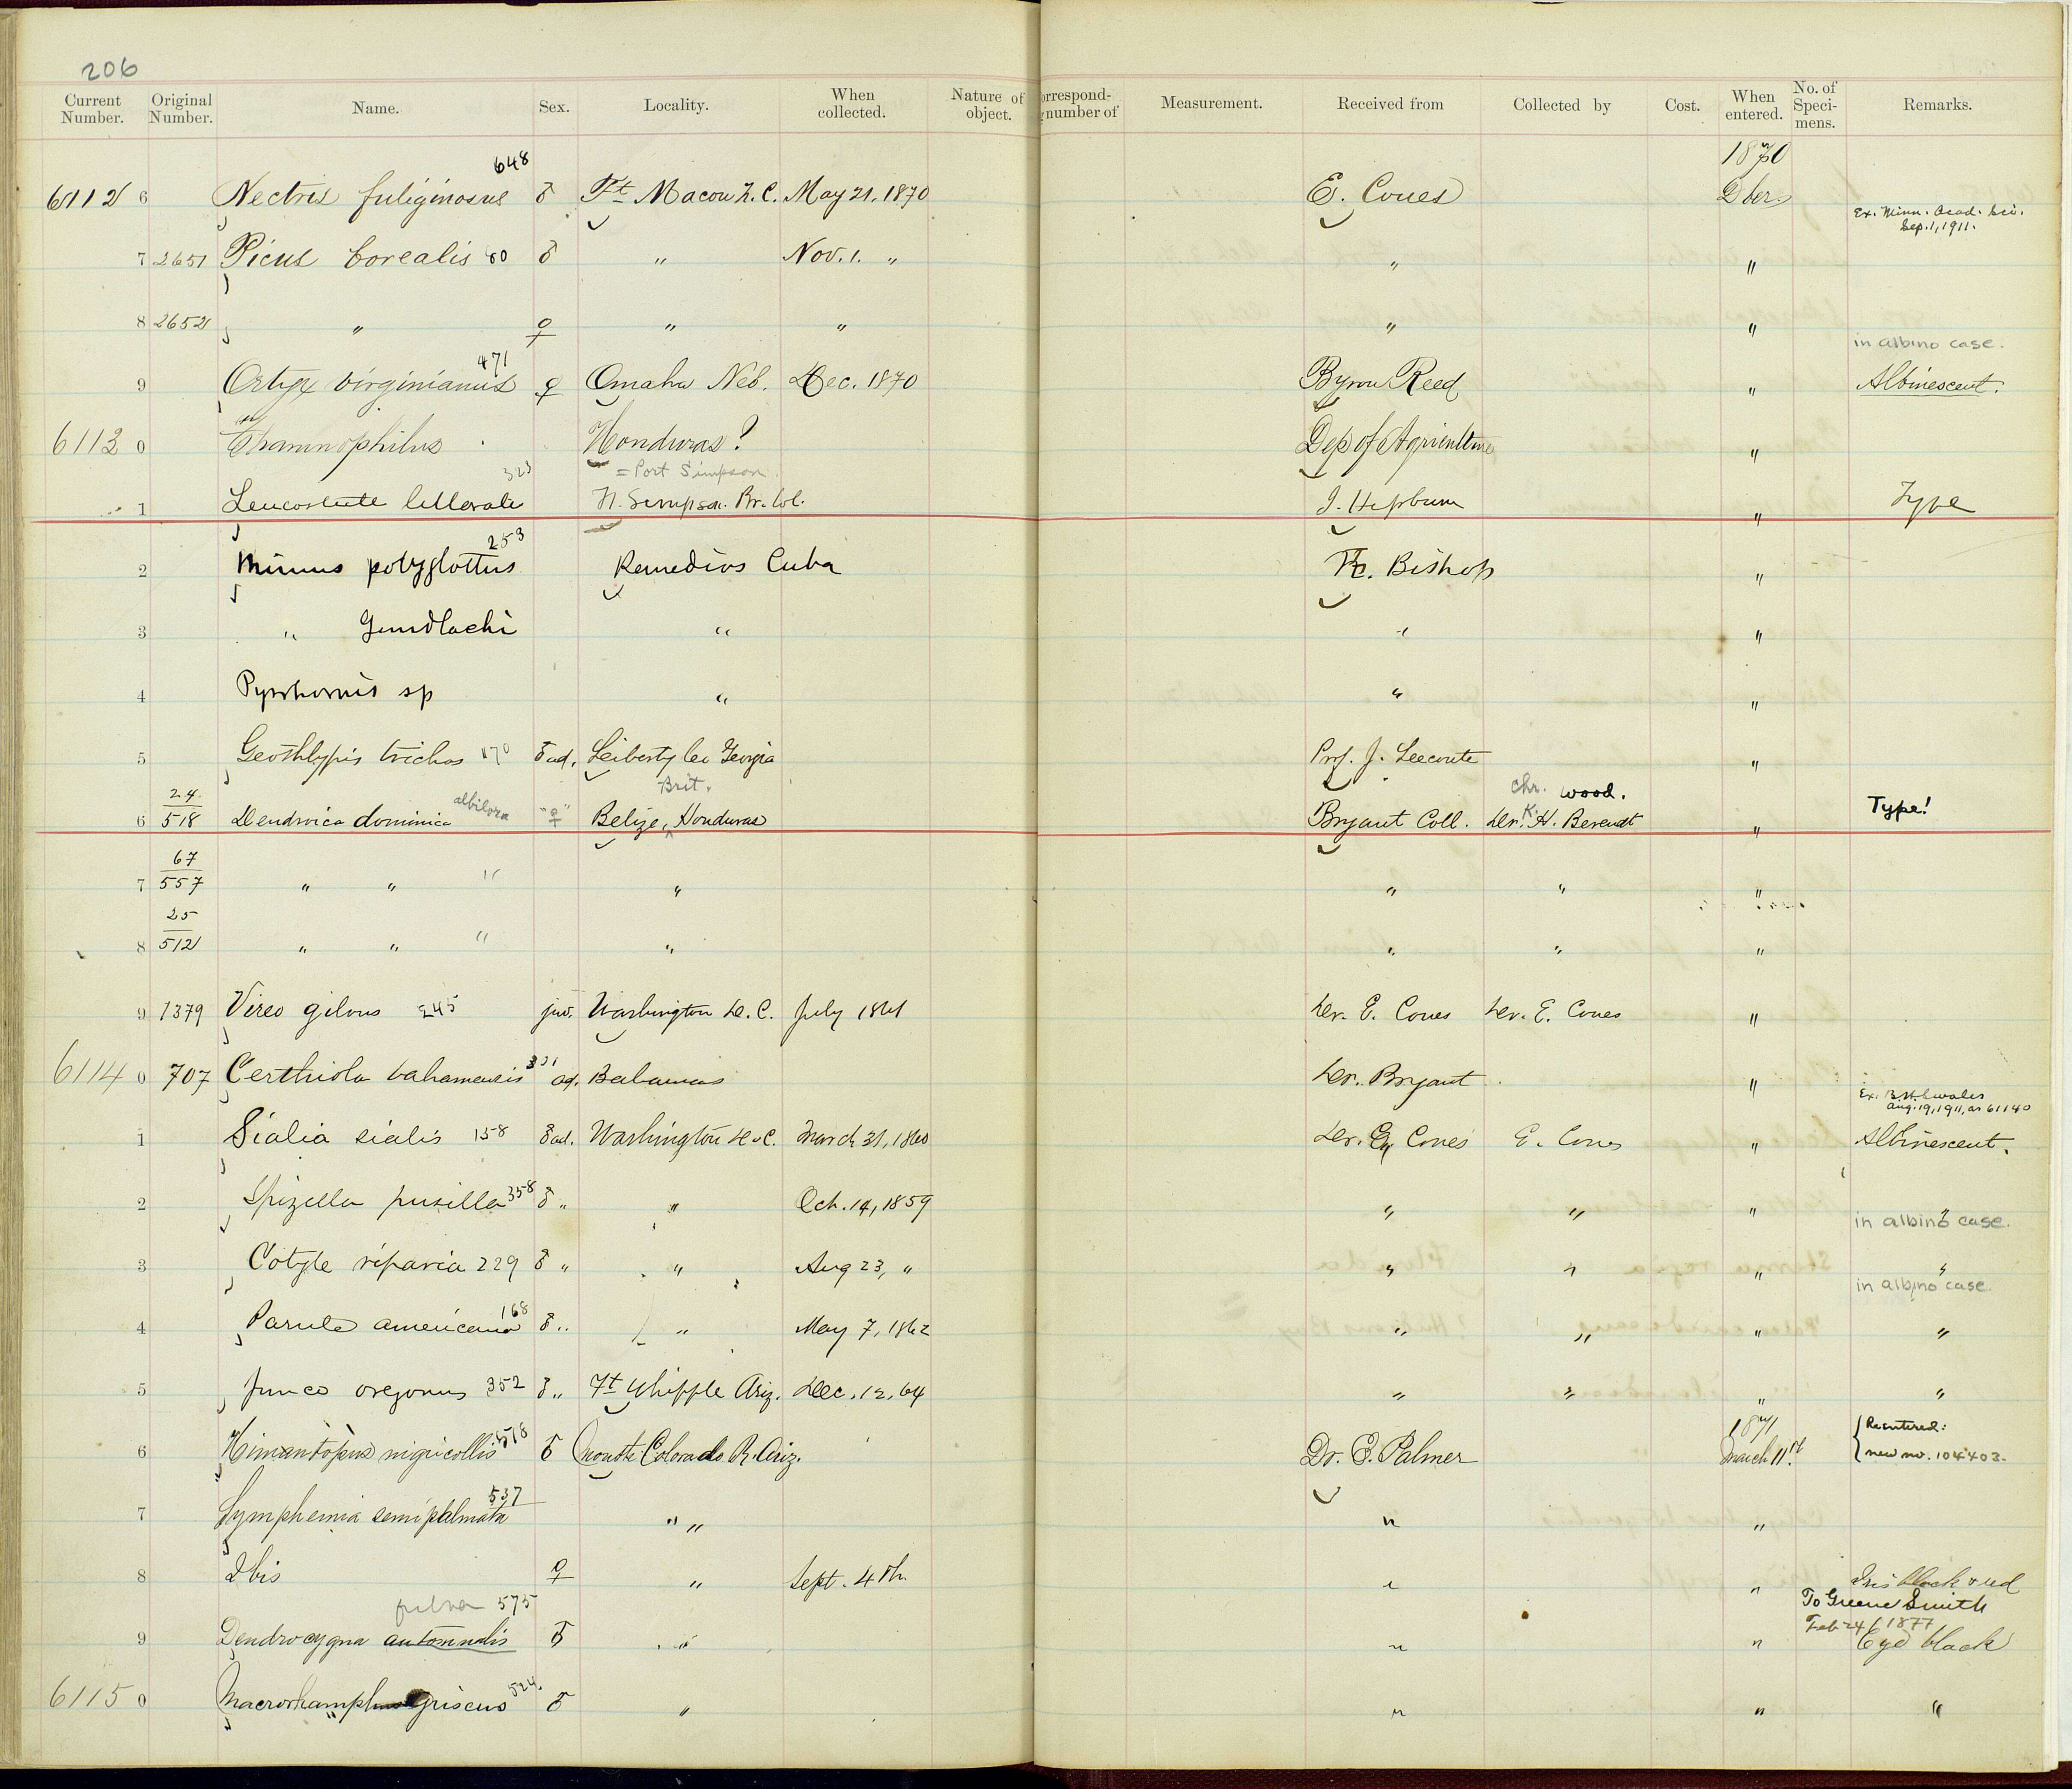 206
Current Number. Original Number. Name. Sex. Locality. When collected. Nature of object. orrespond- number of Measurement. Received from Collected by Cost. When entered. No. of Speci- mens. Remarks.
648 1870
6112 6 Nectris fuliginosus ♂ Ft Macon N.C. May 21. 1870 E. Coues Dber.
Ex. Minn. Acad. Sci. Sep. 1, 1911.
7 2651 Picus borealis 80 ♂ " Nov. 1. " " "
8 2652 " ♀ " " " "
in albino case.
471
9 Ortyx virginianus ♀ Omaha Neb. Dec. 1870 Byron Reed " Albinescent.
6113 0 Thamnophilus Honduras? Dep of Agriculture "
323 = Port Simpson
1 Leucosticte littoralis Ft. Simpson. Br. Col. J. Hepburn " Type
253
2 Mimus polyglottus Remedios Cuba Bishop "
3 " Gundlachi " " "
4 Pyrrhornis sp " " "
5 Geothlypis trichas 170 ♂ ad. Liberty Co Georgia Prof. J. Leconte "
24 albilora Brit. Chr. Wood.
6 518 Dendroica dominica "♀" Belize, Honduras Bryant Coll. Dr. K. H. Berendt " Type!
67
7 557 " " " " " " "
25
8 512 " " " " " " "
9 1379 Vireo gilvus 245 juv. Washington D.C. July 1861 Dr. E. Coues Dr. E. Coues "
6114 0 707 Certhiola bahamensis 301 ad. Bahamas Dr. Bryant "
Ex. B.H. Swales Aug. 19, 1911, as 61140
1 Sialia sialis 158 ♂ ad. Washington D.C. March 31, 1860 Dr. E. Coues E. Coues " Albinescent.
2 Spizella pusilla 358 ♂ " " Oct. 14, 1859 " " " "
in albino case.
3 Cotyle riparia 229 ♂ " " Aug 23, " " " " "
in albino case
4 Parula americana 168 ♂ " " May 7, 1862 " " " "
5 Junco oregonus 352 ♂ " Ft Whipple Ariz. Dec. 12, 64 " " " "
1871 Reentered:
6 Himantopus nigricollis 518 ♂ Mouth Colorado R. Ariz. Dr. E. Palmer March 11th new no. 104403.
537
7 Symphemia semipalmata " " " "
8 Ibis ♀ " Sept. 4th. " " Iris black & red
fulva 575 To Greene Smith
Feb 24/1877
9 Dendrocygna autumnalis ♂ " " " Eye black
6115 0 Macrorhamphus griseus 524. ♂ " " " "